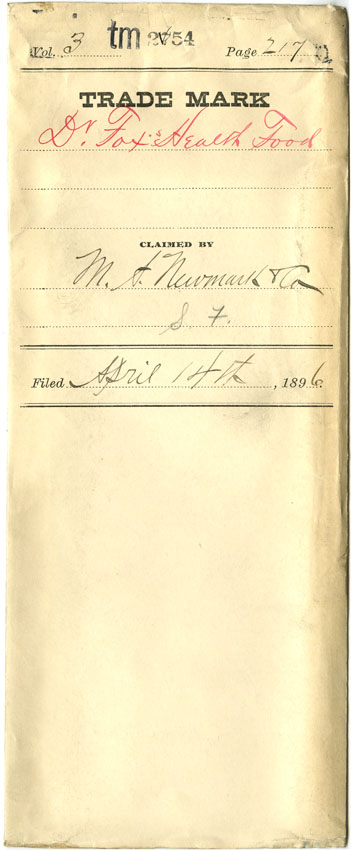 Vol. 3 tm 2754 Page 217
TRADE MARK
Dr. Fox's Health Food
CLAIMED BY
M. A. Newmark & Co
S. F.
Filed April 14th, 1896.